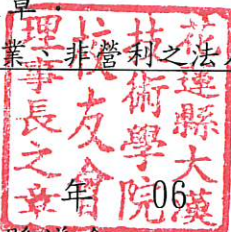 業、非營利之法
花蓮縣大漢
技術學院
校友會
理事長之章
年 06